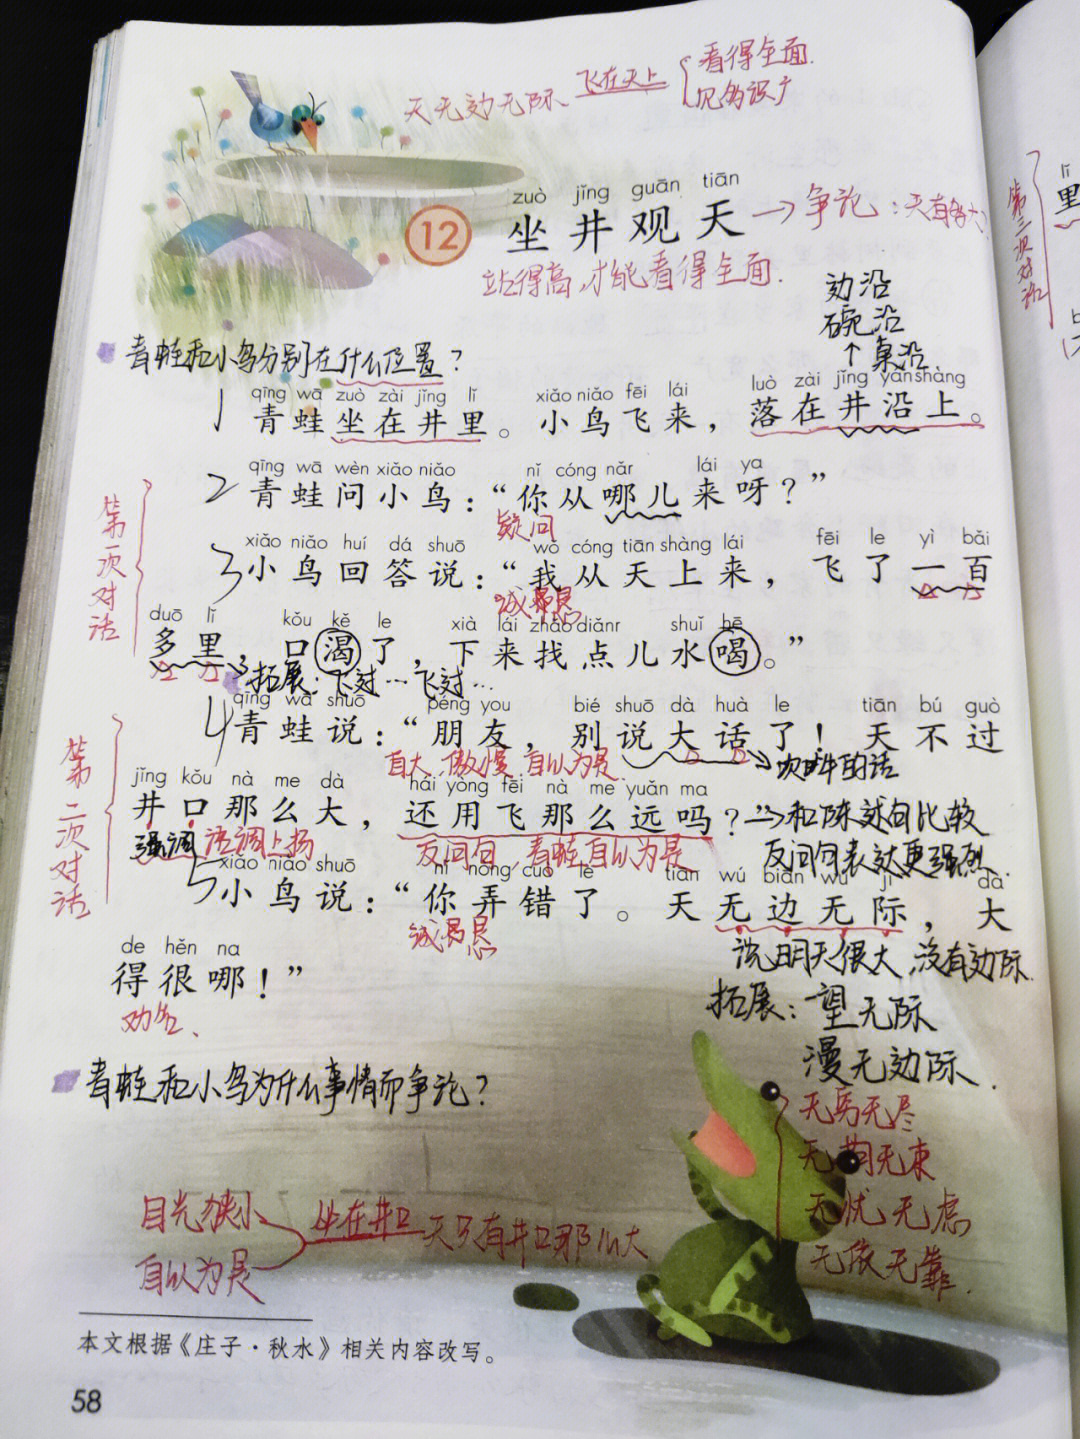 天无边无际 飞在天上 看得全面.
见多识广
zuò jǐng guān tiān
12 坐井观天 → 争论:天有多大?
站得高,才能看得全面.
边沿
碗沿
↑桌沿
青蛙和小鸟分别在什么位置?
qīng wā zuò zài jǐng lǐ xiǎo niǎo fēi lái luò zài jǐng yán shàng
1 青蛙坐在井里。小鸟飞来,落在井沿上。
第一次对话
qīng wā wèn xiǎo niǎo nǐ cóng nǎr lái ya
2 青蛙问小鸟:“你从哪儿来呀?”
疑问
xiǎo niǎo huí dá shuō wǒ cóng tiān shàng lái fēi le yì bǎi
3 小鸟回答说:“我从天上来,飞了一百
诚恳
duō lǐ kǒu kě le xià lái zhǎo diǎnr shuǐ hē
多里,口渴了,下来找点儿水喝。”
拓展:飞过…飞过…
第二次对话
qīng wā shuō péng you bié shuō dà huà le tiān bú guò
4 青蛙说:“朋友,别说大话了!天不过
自大 傲慢 自以为是
吹牛的话
jǐng kǒu nà me dà hái yòng fēi nà me yuǎn ma
井口那么大,还用飞那么远吗?”→和陈述句比较
强调 语调上扬 反问句 青蛙自以为是 反问句表达更强烈.
xiǎo niǎo shuō nǐ nòng cuò le tiān wú biān wú jì dà
5 小鸟说:“你弄错了。天无边无际,大
诚恳
说明天很大,没有边际.
de hěn na
得很哪!”
劝告、
拓展:一望无际
漫无边际.
青蛙和小鸟为什么事情而争论?
无穷无尽
无拘无束
无忧无虑
无依无靠.
目光狭小
自以为是
坐在井口 天只有井口那么大
本文根据《庄子·秋水》相关内容改写。
58
第三次对话
lǐ
里